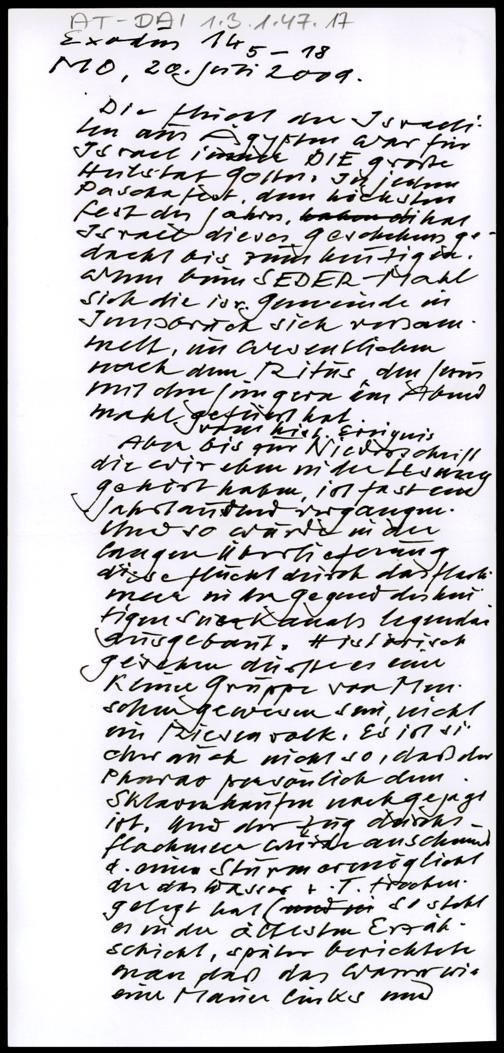 AT-DAI 1.3.1.47.17
Exodus 14 5-18
MO, 20. Juli 2009.
Die Flucht der Israeli-
ten aus Ägypten war für
Israel immer DIE große
Heilstat Gottes. In jedem
Paschafest, dem höchsten
Fest des Jahres, hat
Israel dieses Geschehens ge-
dacht bis zum heutigen.
Wenn beim SEDER-Mahl
sich die isr. Gemeinde in
Innsbruck sich versam-
melt, im Wesentlichen
nach dem Ritus, den Jesus
mit den Jüngern im Abend
mahl gefeiert hat.
vom hist. Ereignis
Aber bis zur Niederschrift
die wir eben in der Lesung
gehört haben, ist fast ein
Jahrtausend vergangen.
Und so wurde in der
langen Überlieferung
diese Flucht durch das Flach
meer in der Gegend des heu
tigen Suezkanals legendär
ausgebaut. Historisch
gesehen dürfte es eine
kleine Gruppe von Men-
schen gewesen sein, nicht
ein Riesenvolk. Es ist si
cher auch nicht so, daß der
Pharao persönlich dem
Sklavenhaufen nachgejagt
ist. Und der Zug durchs
Flachmeer wurde anscheinend
d. einen Sturm ermöglicht
der das Wasser z. T. trocken-
gelegt hat (so steht
es in der ältesten Erzäh-
schicht, später berichtete
man daß das Wasser wie
eine Mauer links und